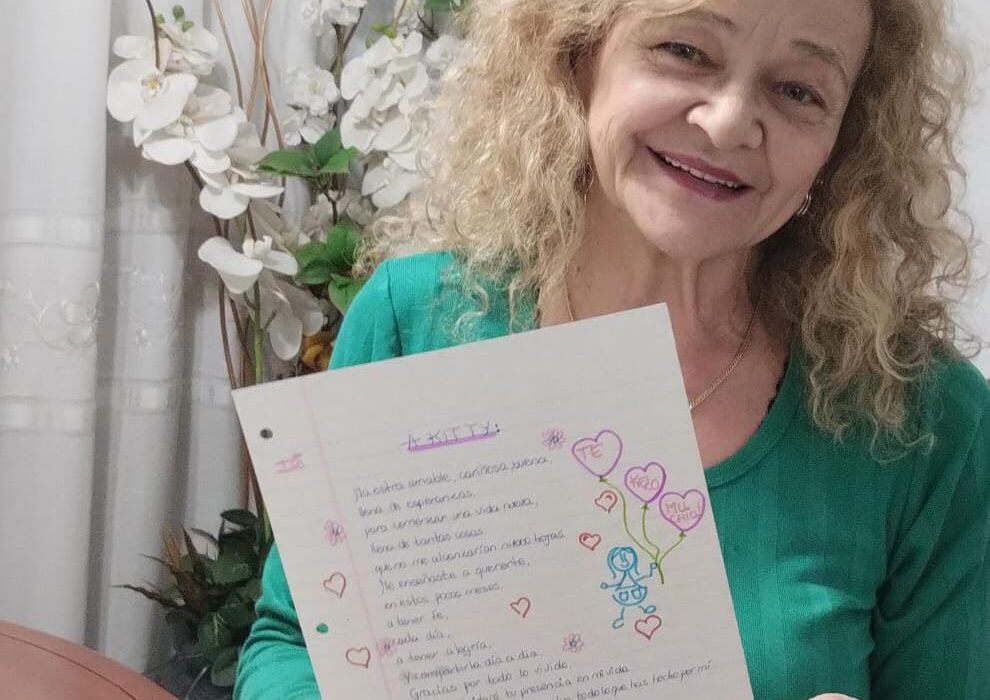 A KITTY:
TE
KERO
MU
Maestra amable, cariñosa, buena,
llena de esperanzas,
para comenzar una vida nueva,
llena de tantas cosas
que no me alcanzarían ni hojas
Me enseñaste a quererte,
en estos pocos meses,
a tener fe,
cada día,
a tener alegría,
Y compartirla día a día.
Gracias por todo lo vivido,
tu presencia en mi vida
todo lo que has hecho por mí